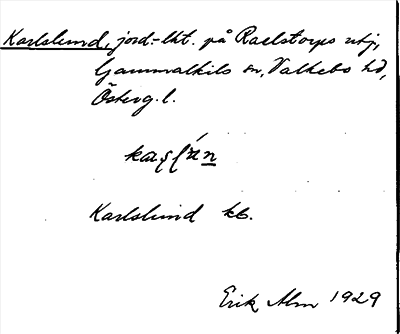 Karlslund, jord.-lht. på Raelstorps utj,
Gammalkils sn, Valkebo hd,
Österg. l.
Karlslund kb.
Erik Alm 1929